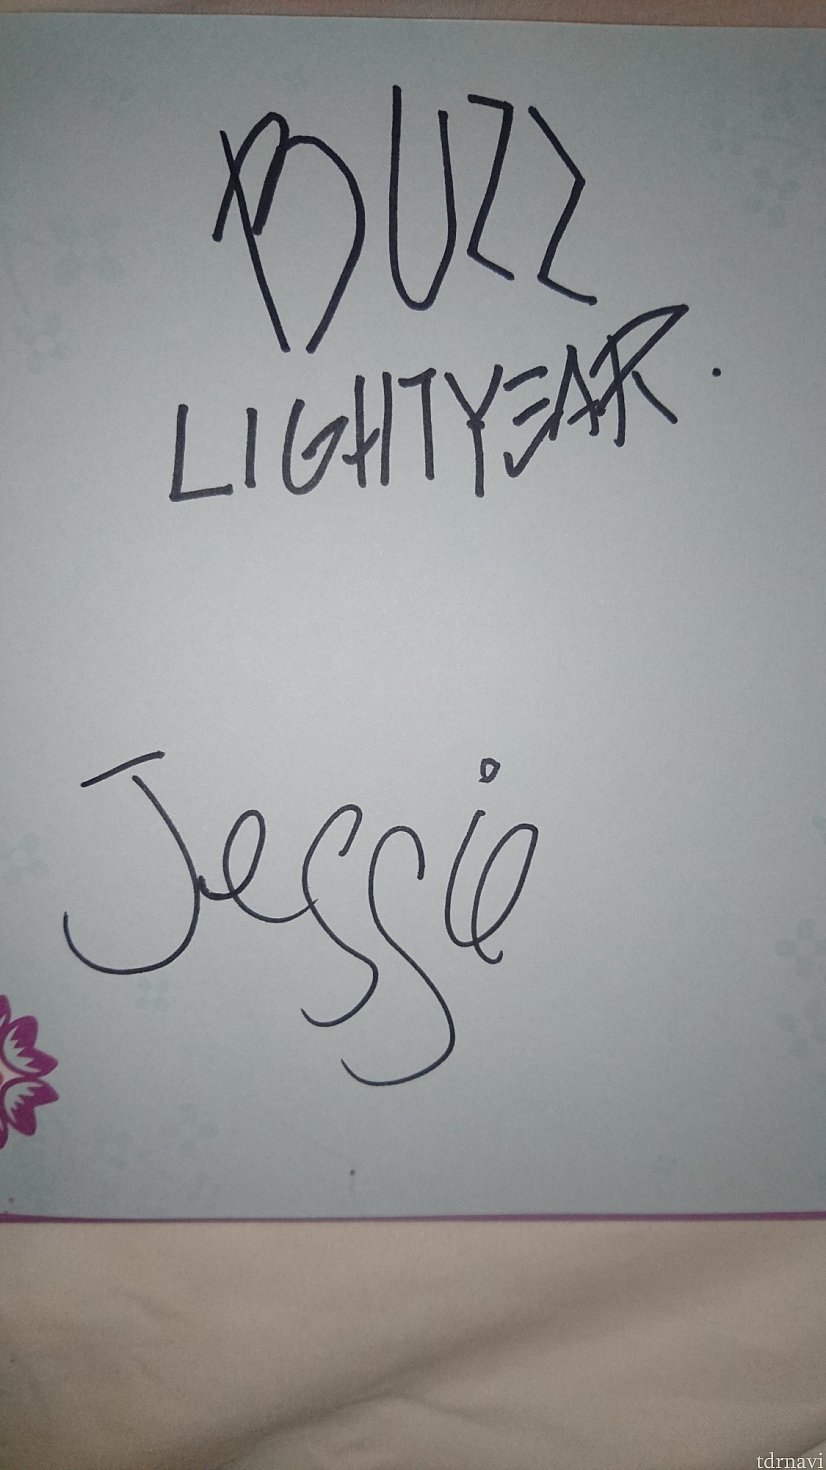 BUZZ
LIGHTYEAR.
Jessie
tdrnavi